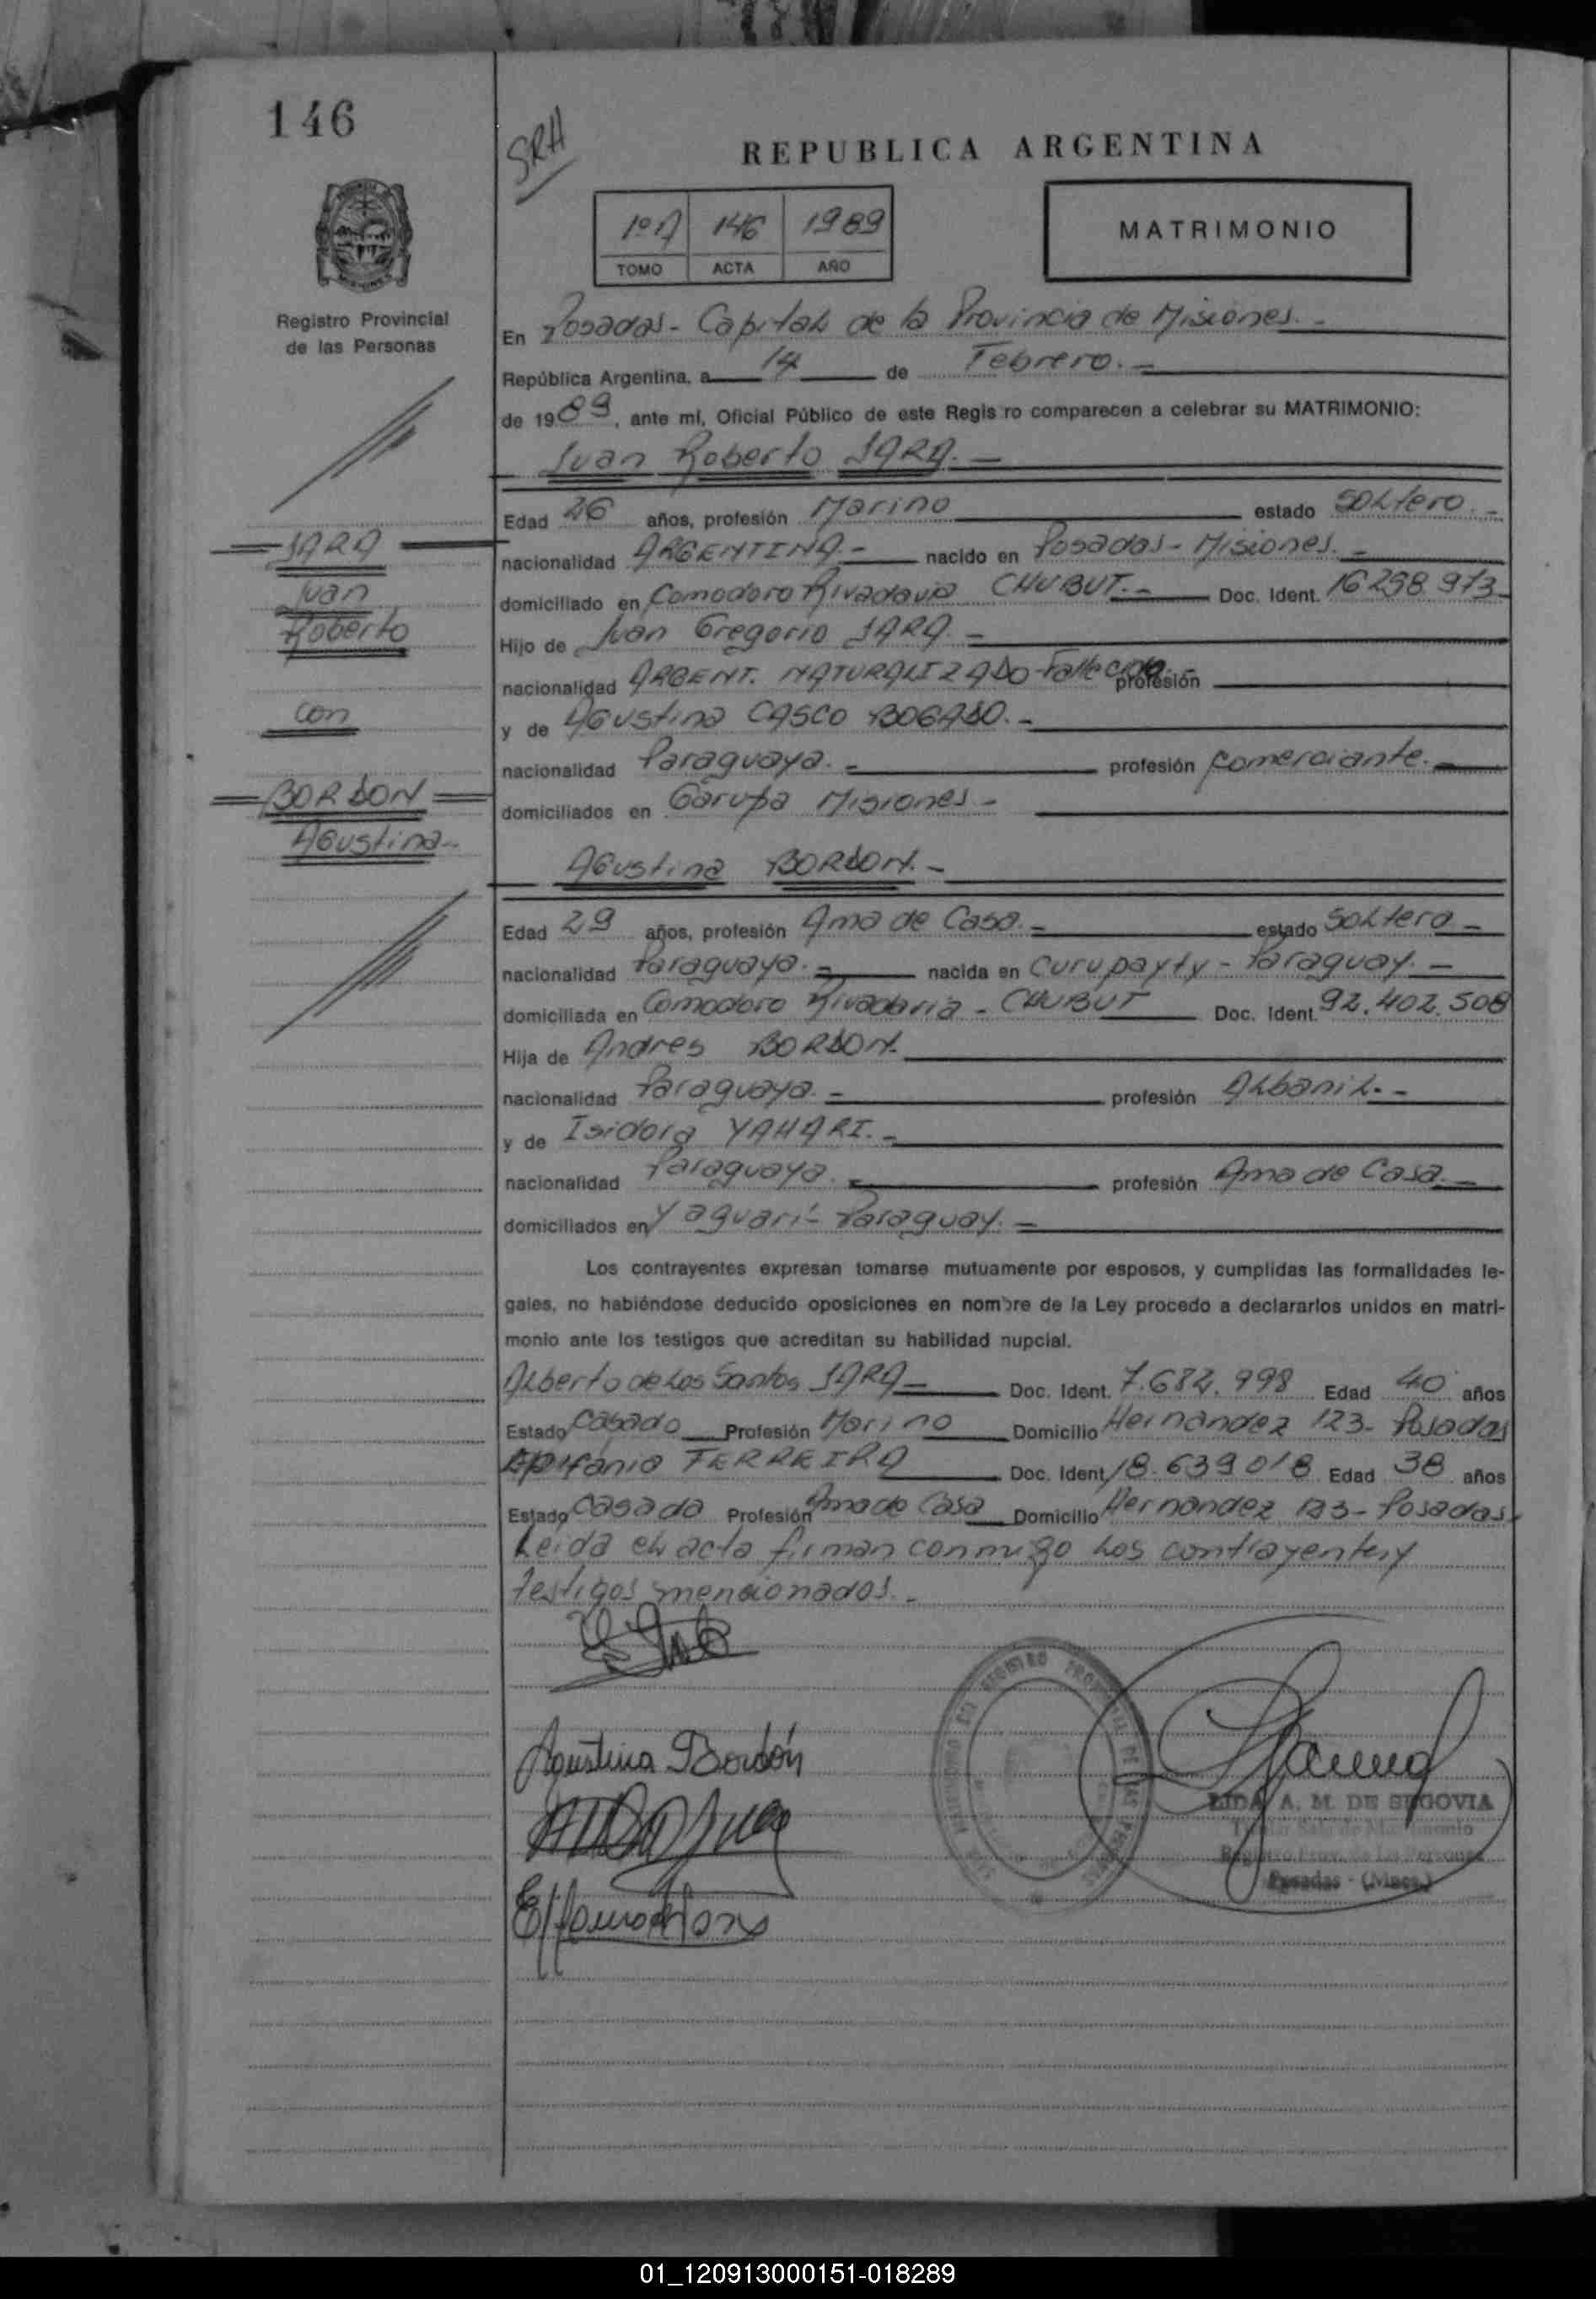 146
SRH
REPUBLICA ARGENTINA
1º A 146 1989
TOMO ACTA AÑO
MATRIMONIO
Registro Provincial
de las Personas
En Posadas - Capital de la Provincia de Misiones. -
República Argentina, a 14 de Febrero. -
de 1989, ante mí, Oficial Público de este Regis ro comparecen a celebrar su MATRIMONIO:
Juan Roberto JARA. -
Edad 26 años, profesión Marino estado Soltero. -
JARA
nacionalidad ARGENTINA. - nacido en Posadas - Misiones. -
Juan
domiciliado en Comodoro Rivadavia CHUBUT. - Doc. Ident. 16 298 973
Roberto
Hijo de Juan Gregorio JARA. -
nacionalidad ARGENT. NATURALIZADO - Fallecido. - profesión
con
y de Agustina CASCO BOGADO. -
nacionalidad Paraguaya. - profesión Comerciante. -
BORDON
domiciliados en Garupa Misiones -
Agustina -
Agustina BORDON. -
Edad 29 años, profesión Ama de Casa. - estado Soltera -
nacionalidad Paraguaya. - nacida en Curupayty - Paraguay. -
domiciliada en Comodoro Rivadavia - CHUBUT Doc. Ident. 92.402.508
Hija de Andres BORDON.
nacionalidad Paraguaya. - profesión Albanil. -
y de Isidora YAHARI. -
nacionalidad Paraguaya. - profesión Ama de Casa. -
domiciliados en Yaguari - Paraguay. -
Los contrayentes expresan tomarse mutuamente por esposos, y cumplidas las formalidades le-
gales, no habiéndose deducido oposiciones en nombre de la Ley procedo a declararlos unidos en matri-
monio ante los testigos que acreditan su habilidad nupcial.
Alberto de Los Santos JARA - Doc. Ident. 7.682.998 Edad 40 años
Estado Casado Profesión Marino Domicilio Hernandez 123 - Posadas
Epifania FERREIRA Doc. Ident. 18.639 018 Edad 38 años
Estado Casada Profesión Ama de Casa Domicilio Hernandez 123 - Posadas
Leida el acta firman conmigo los contrayentes y
testigos mencionados. -
Agustina Bordón
LIDA A. M. DE SEGOVIA
Posadas - (Mnes.)
01_120913000151-018289